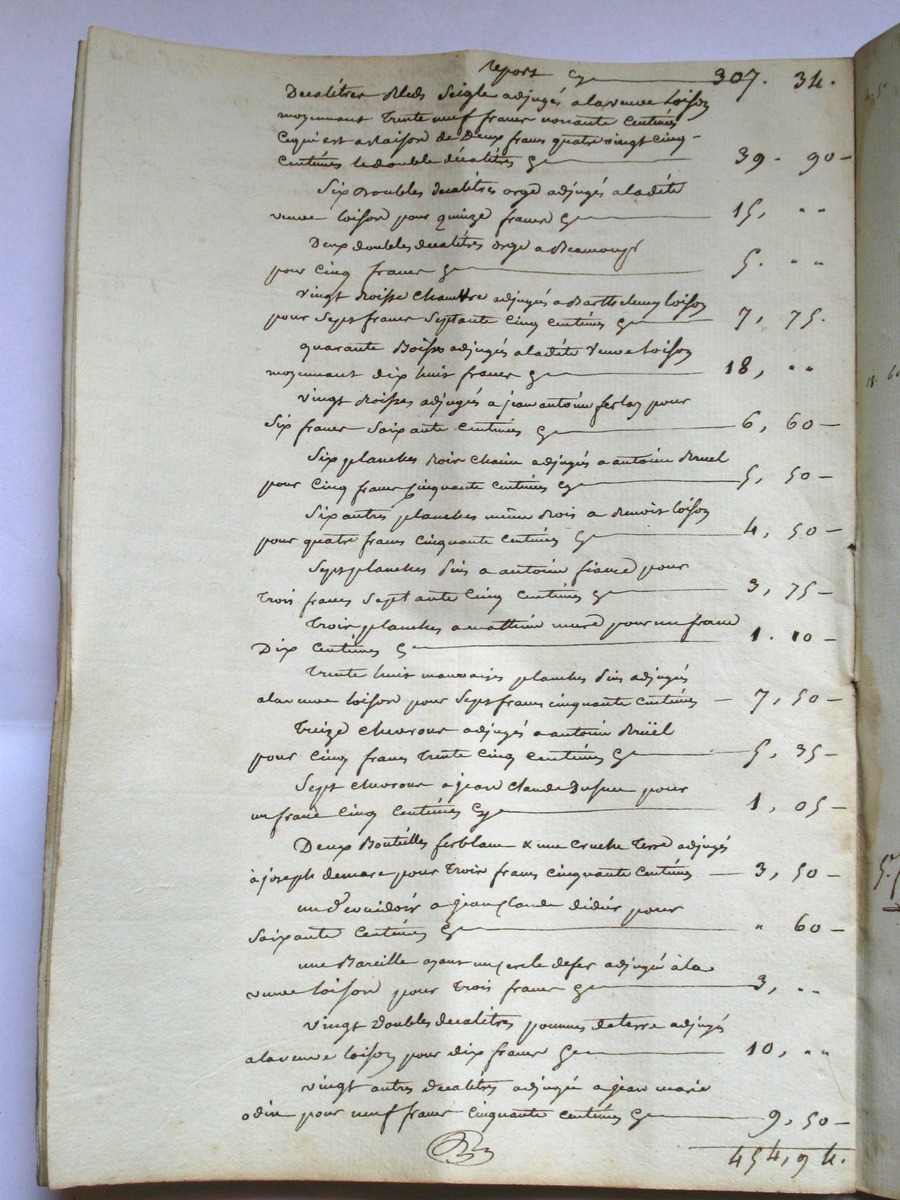 report Cy 307. 34.
Decalitres Bleds Seigle adjugés a la veuve loison
moyennant trente neuf francs nonante Centimes
Ce qui est a Raison de Deux francs quatre vingt Cinq
Centimes le double decalitres Cy 39. 90
Six Doubles decalitres orge adjugés a ladite
veuve loison pour quinze francs Cy 15, " "
Deux doubles decalitres orge a
pour Cinq francs Cy 5. " "
vingt Chanvre adjugés a Barthelemy loison
pour Sept francs Septante Cinq Centimes Cy 7, 75.
quarante adjugés a ladite Veuve loison
moyennant dix huit francs Cy 18, " "
vingt adjugés a jean antoine pour
Six francs Soixante Centimes Cy 6, 60
Six planches Bois Chaine adjugés a antoine Bruel
pour Cinq francs Cinquante Centimes Cy 5, 50
Six autres planches même Bois a Benoit loison
pour quatre francs Cinquante Centimes Cy 4, 50
Sept planches Pin a antoine fiancé pour
trois francs Septante Cinq Centimes Cy 3, 75
trois planches a mathieu pour un franc
Dix Centimes Cy 1. 10
trente huit mauvaises planches Pin adjugés
a la veuve loison pour Sept francs Cinquante Centimes 7, 50
treize chevrons adjugés a antoine Brüel
pour Cinq francs trente Cinq Centimes Cy 5, 35
Sept chevrons a jean Claude pour
un franc Cinq Centimes Cy 1, 05
Deux Bouteilles ferblanc & une Cruche terre adjugés
à joseph demare pour trois francs Cinquante Centimes 3, 50
un a jean Claude didier pour
Soixante Centimes Cy " 60
une Bareille ayant un cercle de fer adjugée à la
veuve loison pour trois francs Cy 3, " "
vingt Doubles decalitres pommes de terre adjugés
a la veuve loison pour dix francs Cy 10, " "
vingt autres decalitres adjugés a jean marie
odin pour neuf francs Cinquante Centimes Cy 9, 50
454, 94.